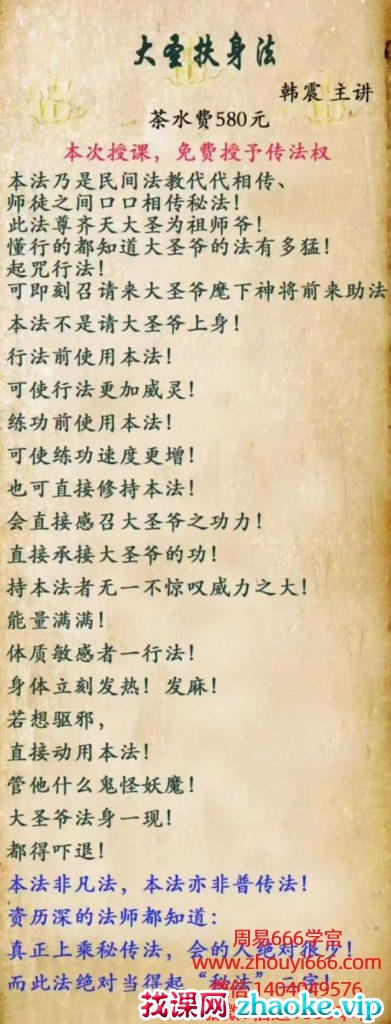 大圣扶身法
韩震 主讲
茶水费580元
本次授课，免费授予传法权
本法乃是民间法教代代相传、
师徒之间口口相传秘法！
此法尊齐天大圣为祖师爷！
懂行的都知道大圣爷的法有多猛！
起咒行法！
可即刻召请来大圣爷麾下神将前来助法
本法不是请大圣爷上身！
行法前使用本法！
可使行法更加威灵！
练功前使用本法！
可使练功速度更增！
也可直接修持本法！
会直接感召大圣爷之功力！
直接承接大圣爷的功！
持本法者无一不惊叹威力之大！
能量满满！
体质敏感者一行法！
身体立刻发热！发麻！
若想驱邪，
直接动用本法！
管他什么鬼怪妖魔！
大圣爷法身一现！
都得吓退！
本法非凡法，本法亦非普传法！
资历深的法师都知道：
周易666学富
真正上乘秘传法，会的人绝对很少！
www.zhouyi666.com
而此法绝对当得起“秘法”二字！
微信1404049576
找课网zhaoke.vip